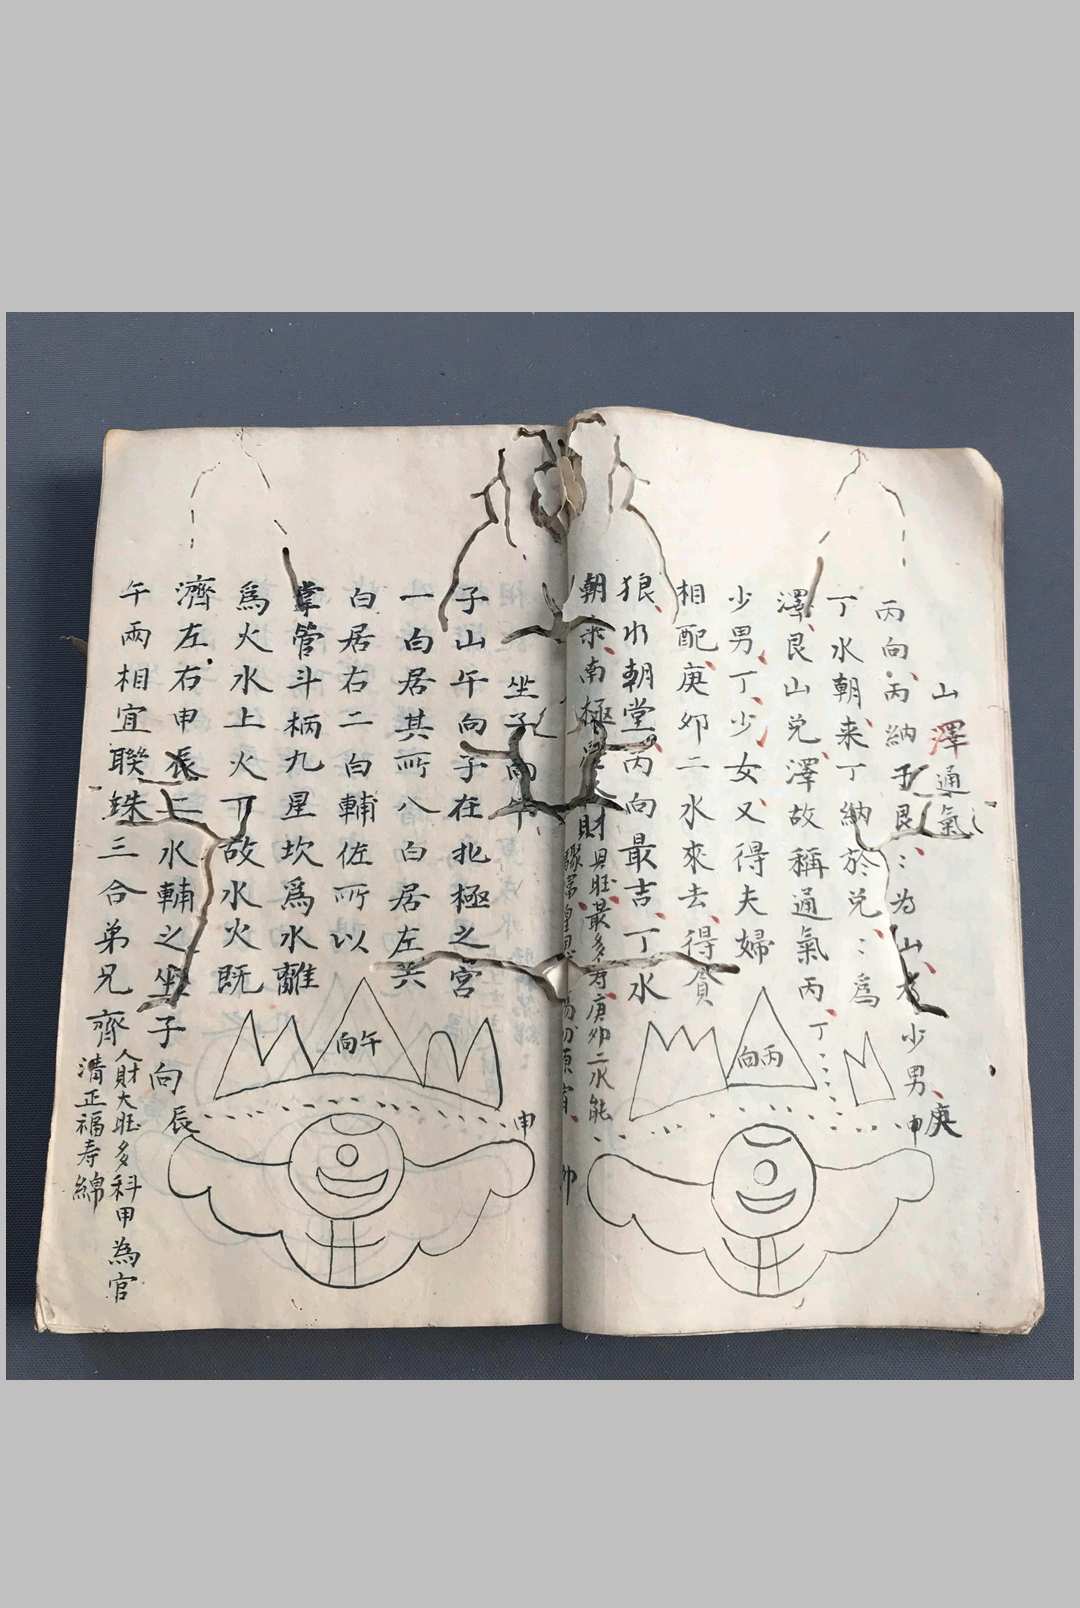 山澤通氣
丙向丙納于艮：為山為少男
丁水朝来丁納於兑：為
澤艮山兑澤故稱通氣丙丁
少男丁少女又得夫婦
相配庚卯二水來去得貪
狼水朝堂丙向最吉丁水
朝来南極 財
具旺最多寿庚卯二水能
庚
申
丙向
坐子向午
子山午向子在北極之宮
一白居其所八白居左六
白居右二白輔佐所以
掌管斗柄九星坎爲水離
爲火水上火下故水火既
濟左右申辰二水輔之坐子向
午兩相宜聯珠三合弟兄齊
人財大旺多科甲為官
清正福寿綿
午向
申
辰